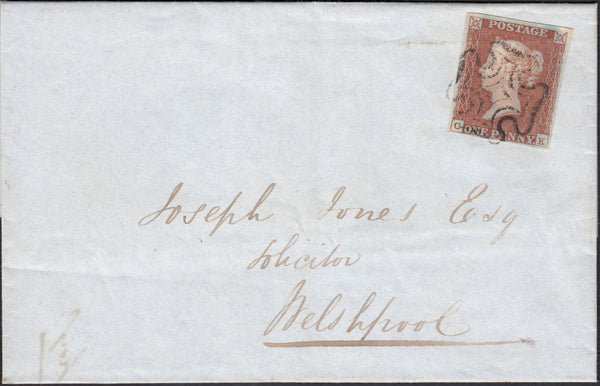 POSTAGE
C ONE PENNY K
Joseph Jones Esq
Solicitor
Welshpool